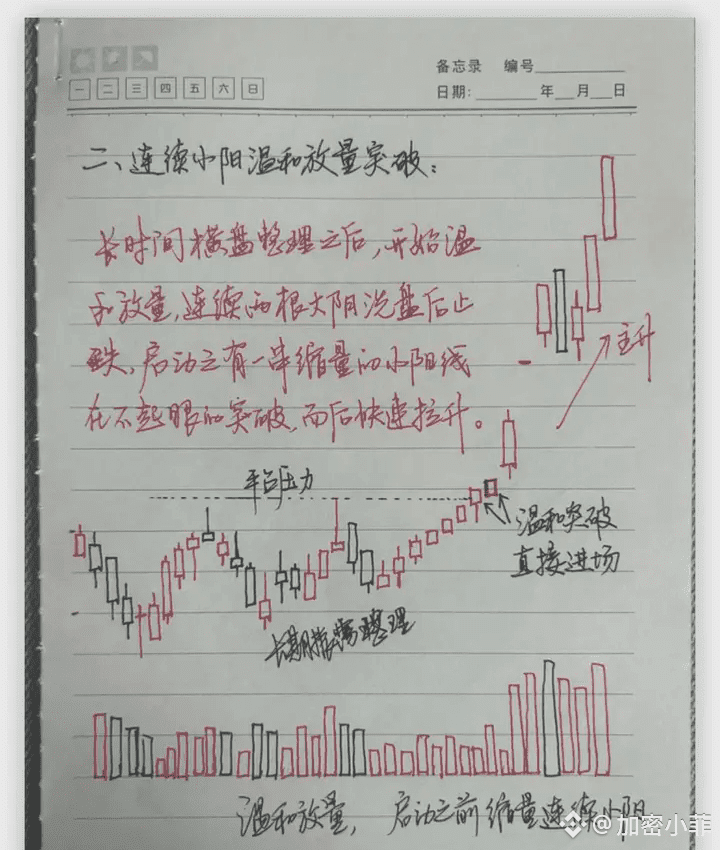 备忘录 编号
一 二 三 四 五 六 日
日期: 年 月 日
二、连续小阳温和放量突破:
长时间横盘整理之后,开始温
和放量,连续两根大阳洗盘后止
跌,启动之有一串缩量的小阳线
在不起眼的突破,而后快速拉升。
主升
平台压力
温和突破
直接进场
长期横盘整理
温和放量, 启动之前缩量连续小阳
@加密小菲